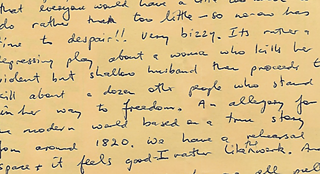 that everyone would have a little
do rather than too little – so no-one has
time to despair!! Very bizzy. Its rather a
depressing play about a woman who kills her
violent but shallow husband then proceeds to
kill about a dozen othr people who stand
in her way to freedom. An allegory for
modern world based on a true story
from around 1820. We have a rehearsal
space & it feels good – I rather like the work. And